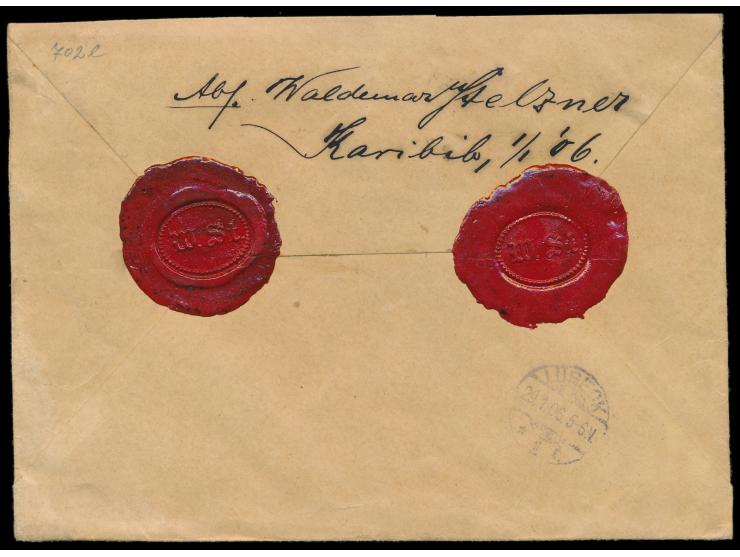 702l
Abs. Waldemar Stelzner
Karibib, 1/1 '06.
W. St.
W. St.
LÜBECK
5-6.V.